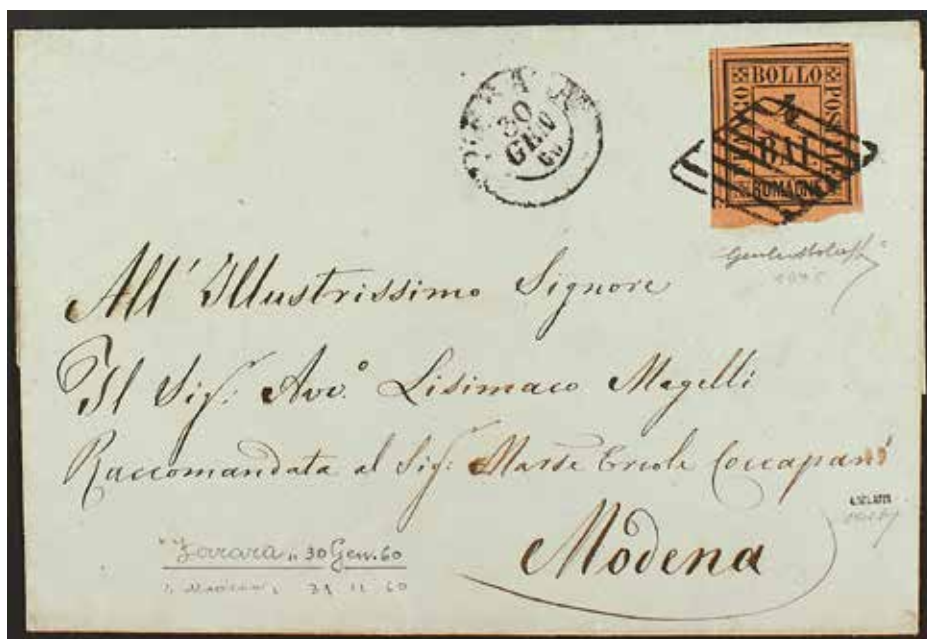 30
GEN
60
BOLLO
FRANCO
POSTALE
4
BAI
ROMAGNE
All' Illustrissimo Signore
Il Sig: Avv.° Lisimaco Magelli
Raccomandata al Sig: Marse Ercole Coccapani
Modena
Ferrara, 30 Gen. 60
31 11 60